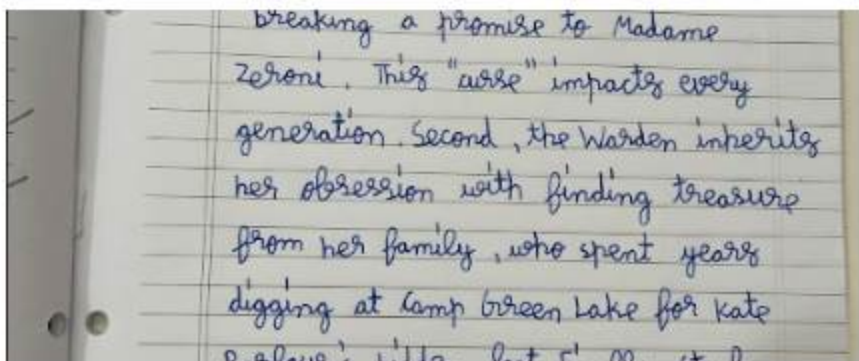 breaking a promise to Madame
Zeroni. This "curse" impacts every
generation. Second, the Warden inherits
her obsession with finding treasure
from her family, who spent years
digging at Camp Green Lake for Kate